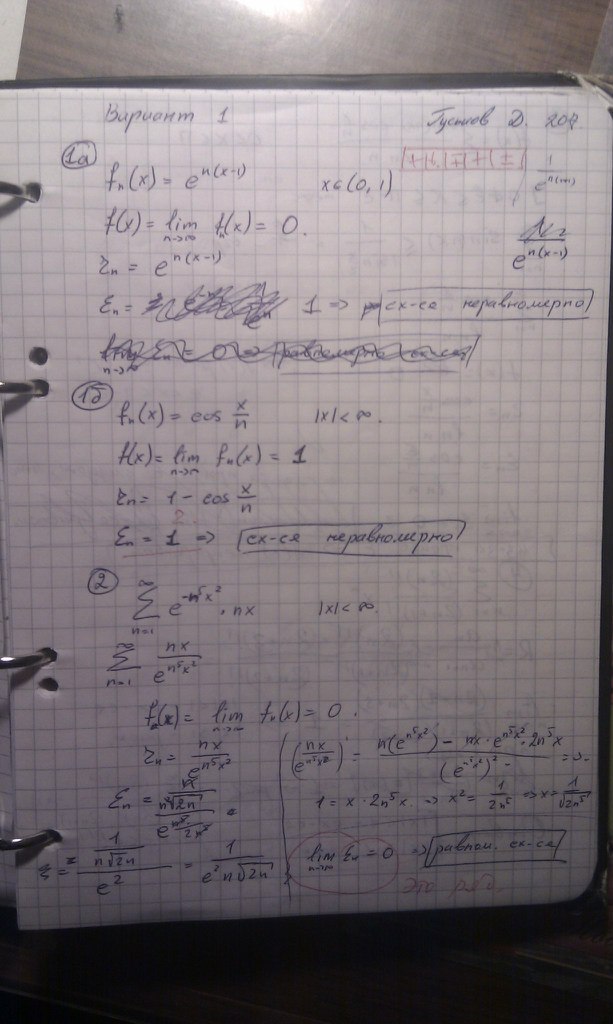 Вариант 1
Д. 207
1а
fₙ(x) = e^{n(x-1)} x∈(0, 1)
f(x) = lim_{n→∞} fₙ(x) = 0.
e^{n(x-1)}
rₙ = e^{n(x-1)}
εₙ = 1 ⇒ сх-ся неравномерно
1б
fₙ(x) = cos x/n |x| < ∞.
f(x) = lim_{n→∞} fₙ(x) = 1
rₙ = 1 - cos x/n
?
εₙ = 1 ⇒ сх-ся неравномерно
2
∑_{n=1}^{∞} e^{-n⁵x²} · nx |x| < ∞.
∑_{n=1}^{∞} nx / e^{n⁵x²}
fₙ(x) = lim_{n→∞} fₙ(x) = 0.
rₙ = nx / e^{n⁵x²}
(nx / e^{n⁵x²})' = (n(e^{n⁵x²}) - nx · e^{n⁵x²} · 2n⁵x) / (e^{n⁵x²})² = 0.
1 = x · 2n⁵x. ⇒ x² = 1/2n⁵ ⇒ x = 1/√(2n⁵)
εₙ =
= (1/(n√2n)) / e² = 1 / (e² n√2n)
lim_{n→∞} εₙ = 0 ⇒ равном. сх-ся
это ряд.